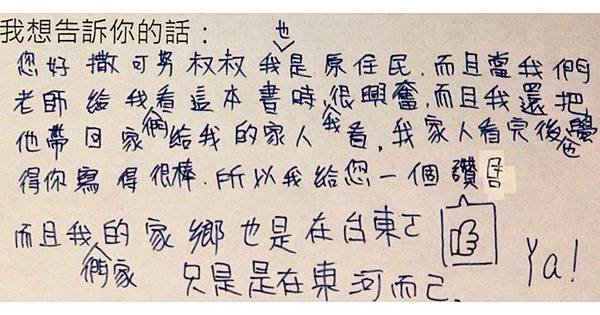 我想告訴你的話：
您好 撒可努 叔叔 我也是 原住民, 而且當我們
老師給我們看這本書時,我很興奮,而且我還把
他帶回家給我的家人看,我家人看完後也覺
得你寫得很棒.所以我給您一個讚
而且我們家的家鄉也是在台東ㄛ
只是是在東河而已.
Ya!